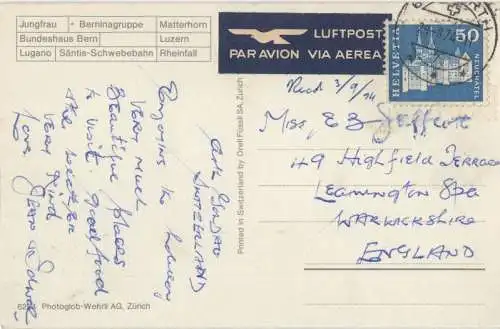 Jungfrau + Berninagruppe Matterhorn
Bundeshaus Bern Luzern
Lugano Säntis-Schwebebahn Rheinfall
LUFTPOST
PAR AVION VIA AEREA
HELVETIA
50
NEUCHATEL
Recd 3/9/74
Miss, E B Jeffcott
49 Highfield Terrace
Leamington Spa
WARWICKSHIRE
ENGLAND
Arth GOLDAU
SWITZERLAND
Enjoying the holiday
VERY much
Beautiful places
to visit. good food
the weather
VERY kind
Love
Printed in Switzerland by Orell Füssli SA, Zürich
Photoglob-Wehrli AG, Zürich